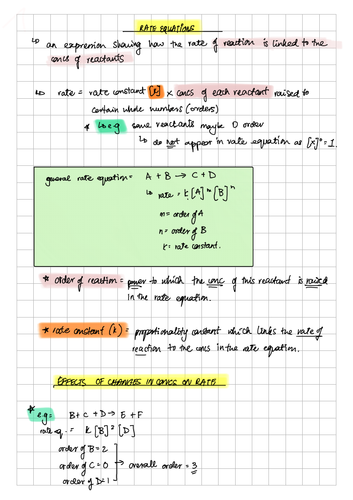 RATE EQUATIONS
↳ an expression showing how the rate of reaction is linked to the
concs of reactants
↳ rate = rate constant [k] × concs of each reactant raised to
certain whole numbers (orders)
* ↳ e.g some reactants maybe 0 order
↳ do not appear in rate equation as [x]⁰ = 1.
general rate equation = A + B → C + D
↳ rate = k[A]ᵐ[B]ⁿ
m = order of A
n = order of B
k = rate constant.
* order of reaction = power to which the conc of this reactant is raised
in the rate equation.
* rate constant (k) = proportionality constant which links the rate of
reaction to the concs in the rate equation.
EFFECTS OF CHANGES IN CONCS ON RATE
* e.g = B + C + D → E + F
rate eq. = k[B]²[D]
order of B = 2
order of C = 0 → overall order = 3
order of D = 1